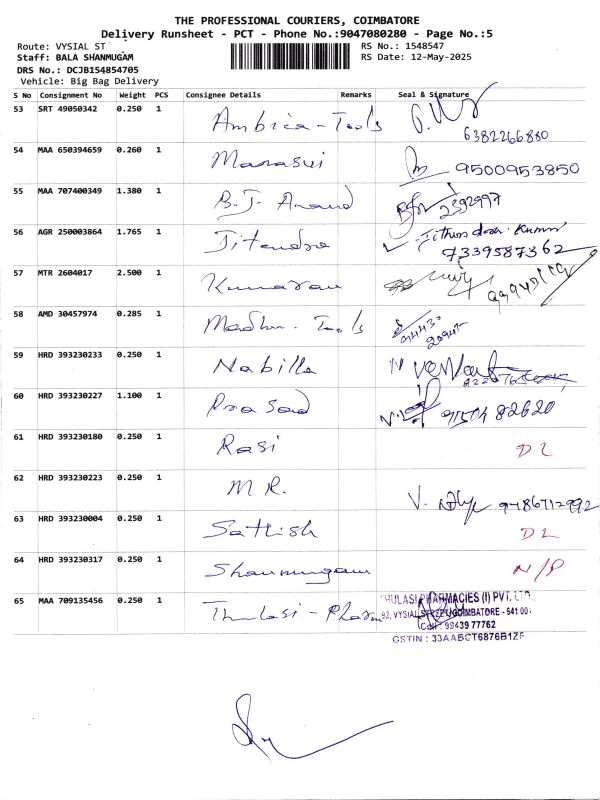 THE PROFESSIONAL COURIERS, COIMBATORE
Delivery Runsheet - PCT - Phone No.:9047080280 - Page No.:5
Route: VYSIAL ST
RS No.: 1548547
Staff: BALA SHANMUGAM
RS Date: 12-May-2025
DRS No.: DCJB154854705
Vehicle: Big Bag Delivery
S No Consignment No Weight PCS Consignee Details Remarks Seal & Signature
53 SRT 49050342 0.250 1 Ambica - Tools
6382266880
54 MAA 650394659 0.260 1 Manasvi 9500953850
55 MAA 707400349 1.380 1 B.J. Anand 2392997
56 AGR 250003864 1.765 1 Jitendra
7339587362
57 MTR 2604017 2.500 1 Kumaran
58 AMD 30457974 0.285 1 Madhu. Tools 94430
20945
59 HRD 393230233 0.250 1 Nabilla
60 HRD 393230227 1.100 1 Prasad 91504 82620
61 HRD 393230180 0.250 1 Rasi DL
62 HRD 393230223 0.250 1 M R. V. 9486712992
63 HRD 393230004 0.250 1 Sathish DL
64 HRD 393230317 0.250 1 Shanmugam N/P
65 MAA 709135456 0.250 1 Thulasi - Pharm
THULASI PHARMACIES (I) PVT. LTD.,
92, VYSIAL STREET, COIMBATORE - 641 001
Cell : 99439 77762
GSTIN : 33AABCT6876B1ZF